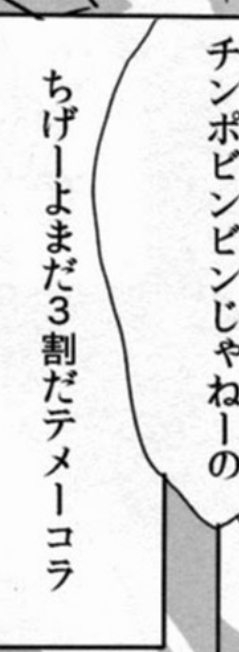 チンポビンビンじゃねーの
ちげーよまだ3割だテメーコラ